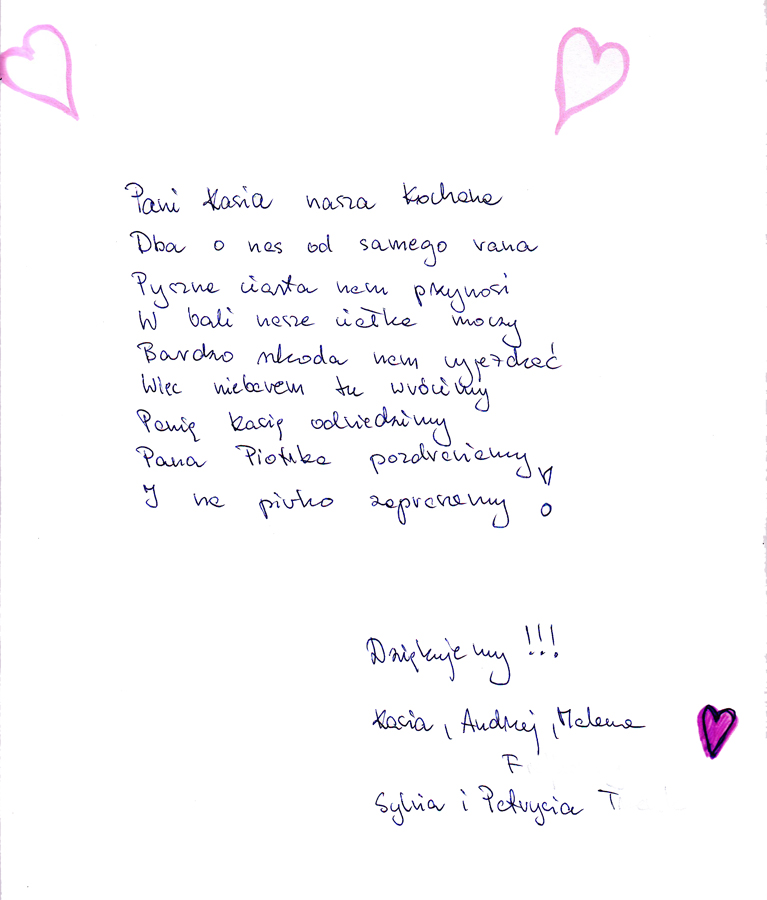 Pani Kasia nasza kochana
Dba o nas od samego rana
Pyszne ciasta nam przynosi
W bali nasze ciałka moczy
Bardzo szkoda nam wyjeżdżać
Więc niebawem tu wrócimy
Panią Kasię odwiedzimy
Pana Piotrka pozdrawiamy
I na piwko zapraszamy !
Dziękujemy !!!
Kasia, Andrzej, Malena
F
Sylwia i Patrycja T